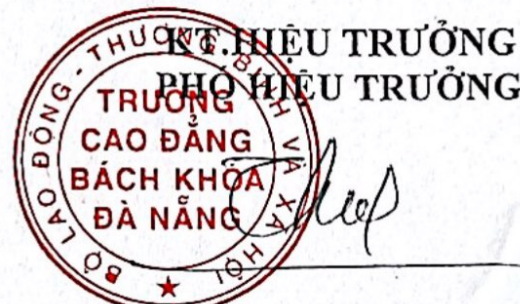 KT.HIỆU TRƯỞNG
PHÓ HIỆU TRƯỞNG
BỘ LAO ĐỘNG - THƯƠNG BINH VÀ XÃ HỘI
TRƯỜNG
CAO ĐẲNG
BÁCH KHOA
ĐÀ NẴNG